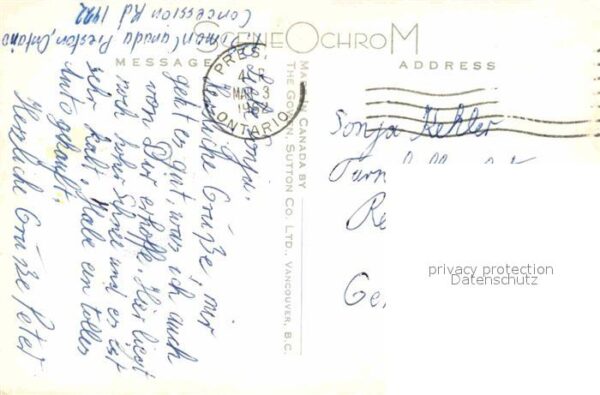 SCENEOCHROM
MESSAGE
ADDRESS
Concession Rd 1422
Preston, Ontario
PRES
MAR 3
ONTARIO
MADE IN CANADA BY
THE GOWEN, SUTTON CO. LTD., VANCOUVER, B.C.
Liebe Sonja.
Herzliche Grüße, mir
geht es gut, was ich auch
von Dir erhoffe. Hier liegt
noch hoher Schnee und es ist
sehr kalt. Habe ein tolles
Auto gekauft.
Herzliche Grüße Peter
Sonja Kehler
Turn
Re
Ge
privacy protection
Datenschutz